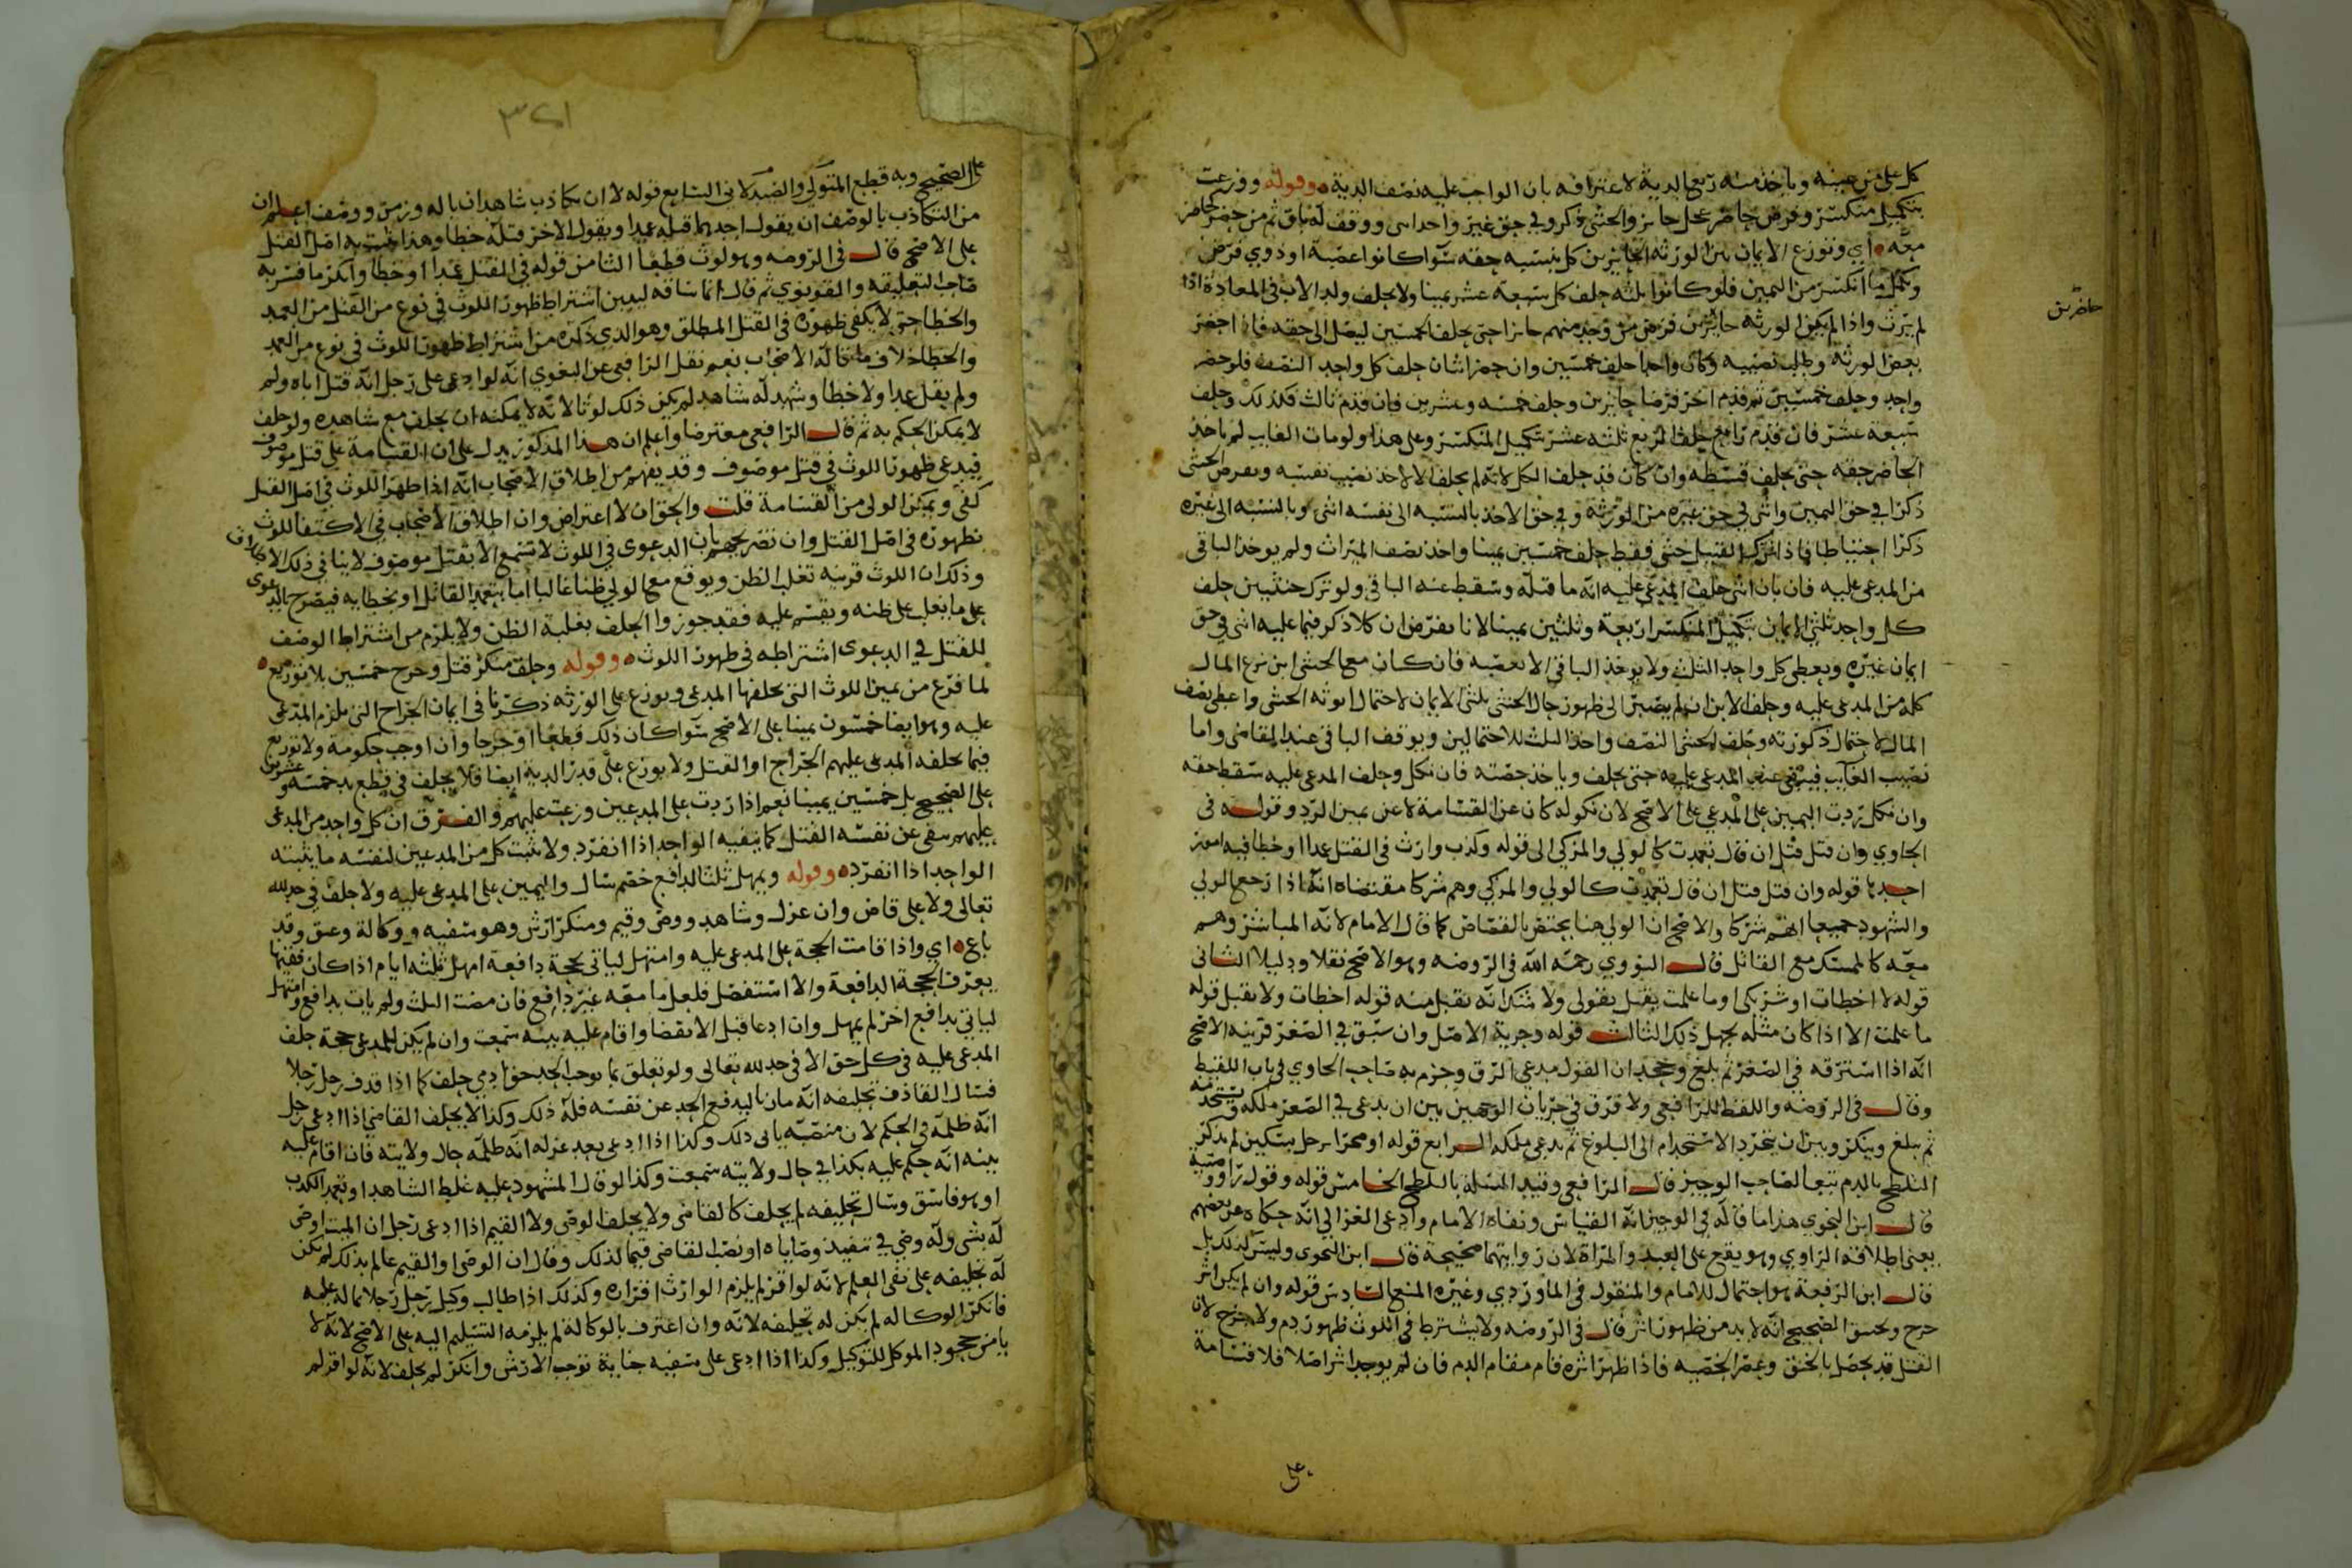 كل على من عينه وياخذ منه ربع الدية لاعترافه بان الواجب عليه نصف الدية وقوله ووزعت
بتكميل منكسر وفرض حاضر بمحل حايز والخنثى ذكر وفي حق غيره واحد اسى ووقف له باق ثم من حضر كحاضر
معه اي وتوزع الايمان بين الورثة الحايزين كل بنسبة حقه سوا كانوا عصبة او ذوي فرض
ويكمل ما انكسر من اليمين فلو كانوا ثلثه حلف كل سبعة عشر يمينا ولا يحلف ولد الاب في المعادة اذا
لم يرث واذا لم يكن الورثه حايزين فرض من وجد منهم حايزا حتى يحلف الخمسين ليصل الى حقه فاذا احضر
بعض الورثه وطلب نصيبه وكان واحدا حلف خمسين وان حضر اثنان حلف كل واحد النصف فلو حضر
واحد وحلف خمسين ثم قدم اخر فرضا حايزين وحلف خمسه وعشرين فان قدم ثالث فكذلك وحلف
سبعة عشر فان قدم رابع حلف الربع ثلثه عشر بتكميل المنكسر وعلى هذا ولو مات الغايب لم ياخذ
الحاضر حقه حتى يحلف قسطه وان كان قد حلف الكل لانه لم يحلف الا لاخذ نصيب نفسه ويفرض الخنثى
ذكرا في حق اليمين وانثى في حق غيره من الورثة وفي حق الاخذ بالنسبه الى نفسه انثى وبالنسبه الى غيره
ذكرا احتياطا فاذا ترك القتيل خنثى فقط حلف خمسين يمينا واخذ نصف الميراث ولم يوخذ الباقي
من المدعى عليه فان بان انثى حلف المدعى عليه انه ما قتله وسقط عنه الباقي ولو ترك خنثيين حلف
كل واحد ثلثي الايمان بتكميل المنكسر اربعة وثلثين يمينا لانا نفرض ان كلا ذكر فيما عليه انثى في حق
ايمان غيره ويعطى كل واحد الثلث ولا يوخذ الباقي الا بعصبه فان كان مع الخنثى ابن نزع المال
كله من المدعى عليه وحلف الابن ان لم يصبر الى ظهور حال الخنثى ثلثي الايمان لاحتمال انوثه الخنثى واعطي نصف
المال لاحتمال ذكورته وحلف الخنثى النصف واخذ الثلث للاحتمالين ويوقف الباقي عند القاضي واما
نصيب الغايب فيبقى عند المدعى عليه حتى يحلف وياخذ حصته فان نكل وحلف المدعى عليه سقط حقه
وان نكل ردت اليمين على المدعي على الاصح لان نكوله كان عن القسامة لا عن يمين الرد وقوله في
الحاوي وان قتل قتل ان قال تعمدت كالولي والمزكي الى قوله وكذب وارث في القتل عمدا او خطا فيه امور
احدها قوله وان قتل قتل ان قال تعمدت كالولي والمزكي وهم شركا مقتضاه انه اذا رجع الولي
والشهود جميعا انهم شركا والاصح ان الولي هنا يختص بالقصاص كما قال الامام لانه المباشر وهم
معه كالممسك مع القاتل قال النووي رحمه الله في الروضه وهو الاصح نقلا ودليلا الثاني
قوله لا اخطات او شريكي او ما علمت يقبل بقولي ولا شك انه تقبل منه قوله اخطات ولا يقبل قوله
ما علمت الا اذا كان مثله يجهل ذلك الثالث قوله وحرية الاصل وان سبق في الصغر قرينه الاصح
انه اذا استرقه في الصغر ثم بلغ وجحد ان القول مدعي الرق وجزم به صاحب الحاوي في باب اللقيط
وقال في الروضه واللفظ للرافعي ولا فرق في جريان الوجهين بين ان يدعى في الصغر ملكه ويستخدمه
ثم يبلغ وينكر وبين ان يتجرد الاستخدام الى البلوغ ثم يدعى ملكه الرابع قوله او محرا رجل بسكين لم يذكر
التلطخ بالدم تبعا لصاحب الوجيز قال الرافعي وقيد المسئلة بالتلطخ الخامس قوله وقول راو وصبية
قال ابن النحوي هذا ما قاله في الوجيز انه القياس ونفاه الامام وادعى الغزالي انه حكاه عن بعضهم
يعني اطلاقه الراوي وهو يقع على العبد والمراة لان روايتهما صحيحة قال ابن النحوي وليس كذلك بل
قال ابن الرفعة هو احتمال للامام والمنقول في الماوردي وغيره المنع السادس قوله وان لم يكن اثر
جرح وخنق الصحيح انه لا بد من ظهور اثر قال في الروضه ولا يشترط في اللوث ظهور دم ولا جرح لان
القتل قد يحصل بالخنق وعصر الخصيه فاذا ظهر اثره قام مقام الدم فان لم يوجد اثر اصلا فلا قسامة
على
حاضرين
٣٢١
على الصحيح وبه قطع المتولي والصيدلاني السابع قوله لا ان تكاذب شاهدان باله وزمن ووصف اعلم ان
من التكاذب بالوصف ان يقول احدهما قتله عمدا ويقول الاخر قتله خطا وهذا يثبت به اصل القتل
على الاصح قال في الروضه وهو لوث قطعا الثامن قوله في القتل عمدا او خطا وانكر ما فسر به
صاحب التعليقه والقونوي ثم قال انما ساقه ليبين اشتراط ظهور اللوث في نوع من القتل من العمد
والخطا حتى لا يكفي ظهوره في القتل المطلق وهو الذي ذكره من اشتراط ظهور اللوث في نوع من العمد
والخطا خلاف ما قاله الاصحاب نعم نقل الرافعي عن البغوي انه لو ادعى على رجل انه قتل اباه ولم
ولم يقل عمدا ولا خطا وشهد له شاهد لم يكن ذلك لوثا لانه لا يمكنه ان يحلف مع شاهده ولو حلف
لا يمكن الحكم به ثم قال الرافعي معترضا واعلم ان هذا المذكور يدل على ان القسامة على قتل موصوف
فيدعي ظهور اللوث في قتل موصوف وقد يفهم من اطلاق الاصحاب انه اذا ظهر اللوث في اصل القتل
كفى ويمكن الولي من القسامة قلت والحق ان لا اعتراض وان اطلاق الاصحاب في الاكتفا للوث
بظهوره في اصل القتل وان تصريحهم بان الدعوى في اللوث لا تسمع الا بقتل موصوف لا ينافي ذلك الاطلاق
وذلك ان اللوث قرينه تغلب الظن ويوقع مع الولي ظنا غالبا اما بتعمد القاتل او بخطايه فيصرح بالدعوى
على ما يغلب على ظنه ويقسم عليه فقد جوزوا الحلف بغلبة الظن ولا يلزم من اشتراط الوصف
للقتل في الدعوى اشتراطه في ظهور اللوث وقوله وحلف منكر قتل وجرح خمسين بلا توزيع
لما فرغ من يمين اللوث التي يحلفها المدعي ويوزع على الورثه ذكرنا في ايمان الجراح التي يلزم المدعى
عليه وهو ايضا خمسون يمينا على الاصح سوا كان ذلك قطعا او جرحا وان اوجب حكومة ولا توزيع
فيما يحلفه المدعى عليهم الجراح او القتل ولا يوزع على قدر الدية ايضا فلا يحلف في قطع يد خمسه وعشرين
على الصحيح بل خمسين يمينا نعم اذا ردت على المدعين وزعت عليهم والفرق ان كل واحد من المدعى
عليهم ينفي عن نفسه القتل كما ينفيه الواحد اذا انفرد ولا يثبت كل من المدعين لنفسه ما يثبته
الواحد اذا انفرد وقوله ويمهل ثلثا لدافع خصم سال واليمين على المدعى عليه ولا حلف في حد لله
تعالى ولا على قاض وان عزل وشاهد ووصي وقيم ومنكر ارش وهو سفيه ووكالة وعتق وقد
باع اي واذا قامت الحجة على المدعى عليه وامتهل لياتي بحجة دافعة امهل ثلثه ايام اذا كان فقيها
يعرف الحجة الدافعة والا استفصل فلعل ما معه غير دافع فان مضت الثلث ولم يات بدافع وامتهل
لياتي بدافع اخر لم يمهل وان ادعا قبل الانقضا واقام عليه بينه سمعت وان لم يكن للمدعي حجة حلف
المدعى عليه في كل حق الا في حد لله تعالى ولو تعلق بما يوجب الحد حق ادمي حلف كما اذا قذف رجل رجلا
فسال القاذف تحليفه انه ما زنا ليدفع الحد عن نفسه فله ذلك وكذا لا يحلف القاضي اذا ادعى رجل
انه ظلمه في الحكم لان منصبه يابى ذلك وكذا اذا ادعى بعد عزله انه ظلمه حال ولايته فان اقام عليه
بينه انه حكم عليه بكذا في حال ولايته سمعت وكذا لو قال المشهود عليه غلط الشاهد او تعمد الكذب
او هو فاسق وسال تحليفه لم يحلف كالقاضي ولا يحلف الوصي ولا القيم اذا ادعى رجل ان الميت اوصى
له بشي وله وصي في تنفيذ وصاياه او نصب القاضي قيما لذلك وقال ان الوصي او القيم عالم بذلك لم يكن
له تحليفه على نفي العلم لانه لو اقر لم يلزم الوارث اقراره وكذلك اذا طالب وكيل رجل رجلا بما له عليه
فانكر الوكاله لم يكن له تحليفه لانه وان اعترف بالوكالة لم يلزمه التسليم اليه على الاصح لانه لا
يامن جحود الموكل للتوكيل وكذا اذا ادعى على سفيه جناية توجب الارش وانكر لم يحلف لانه لو اقر لم